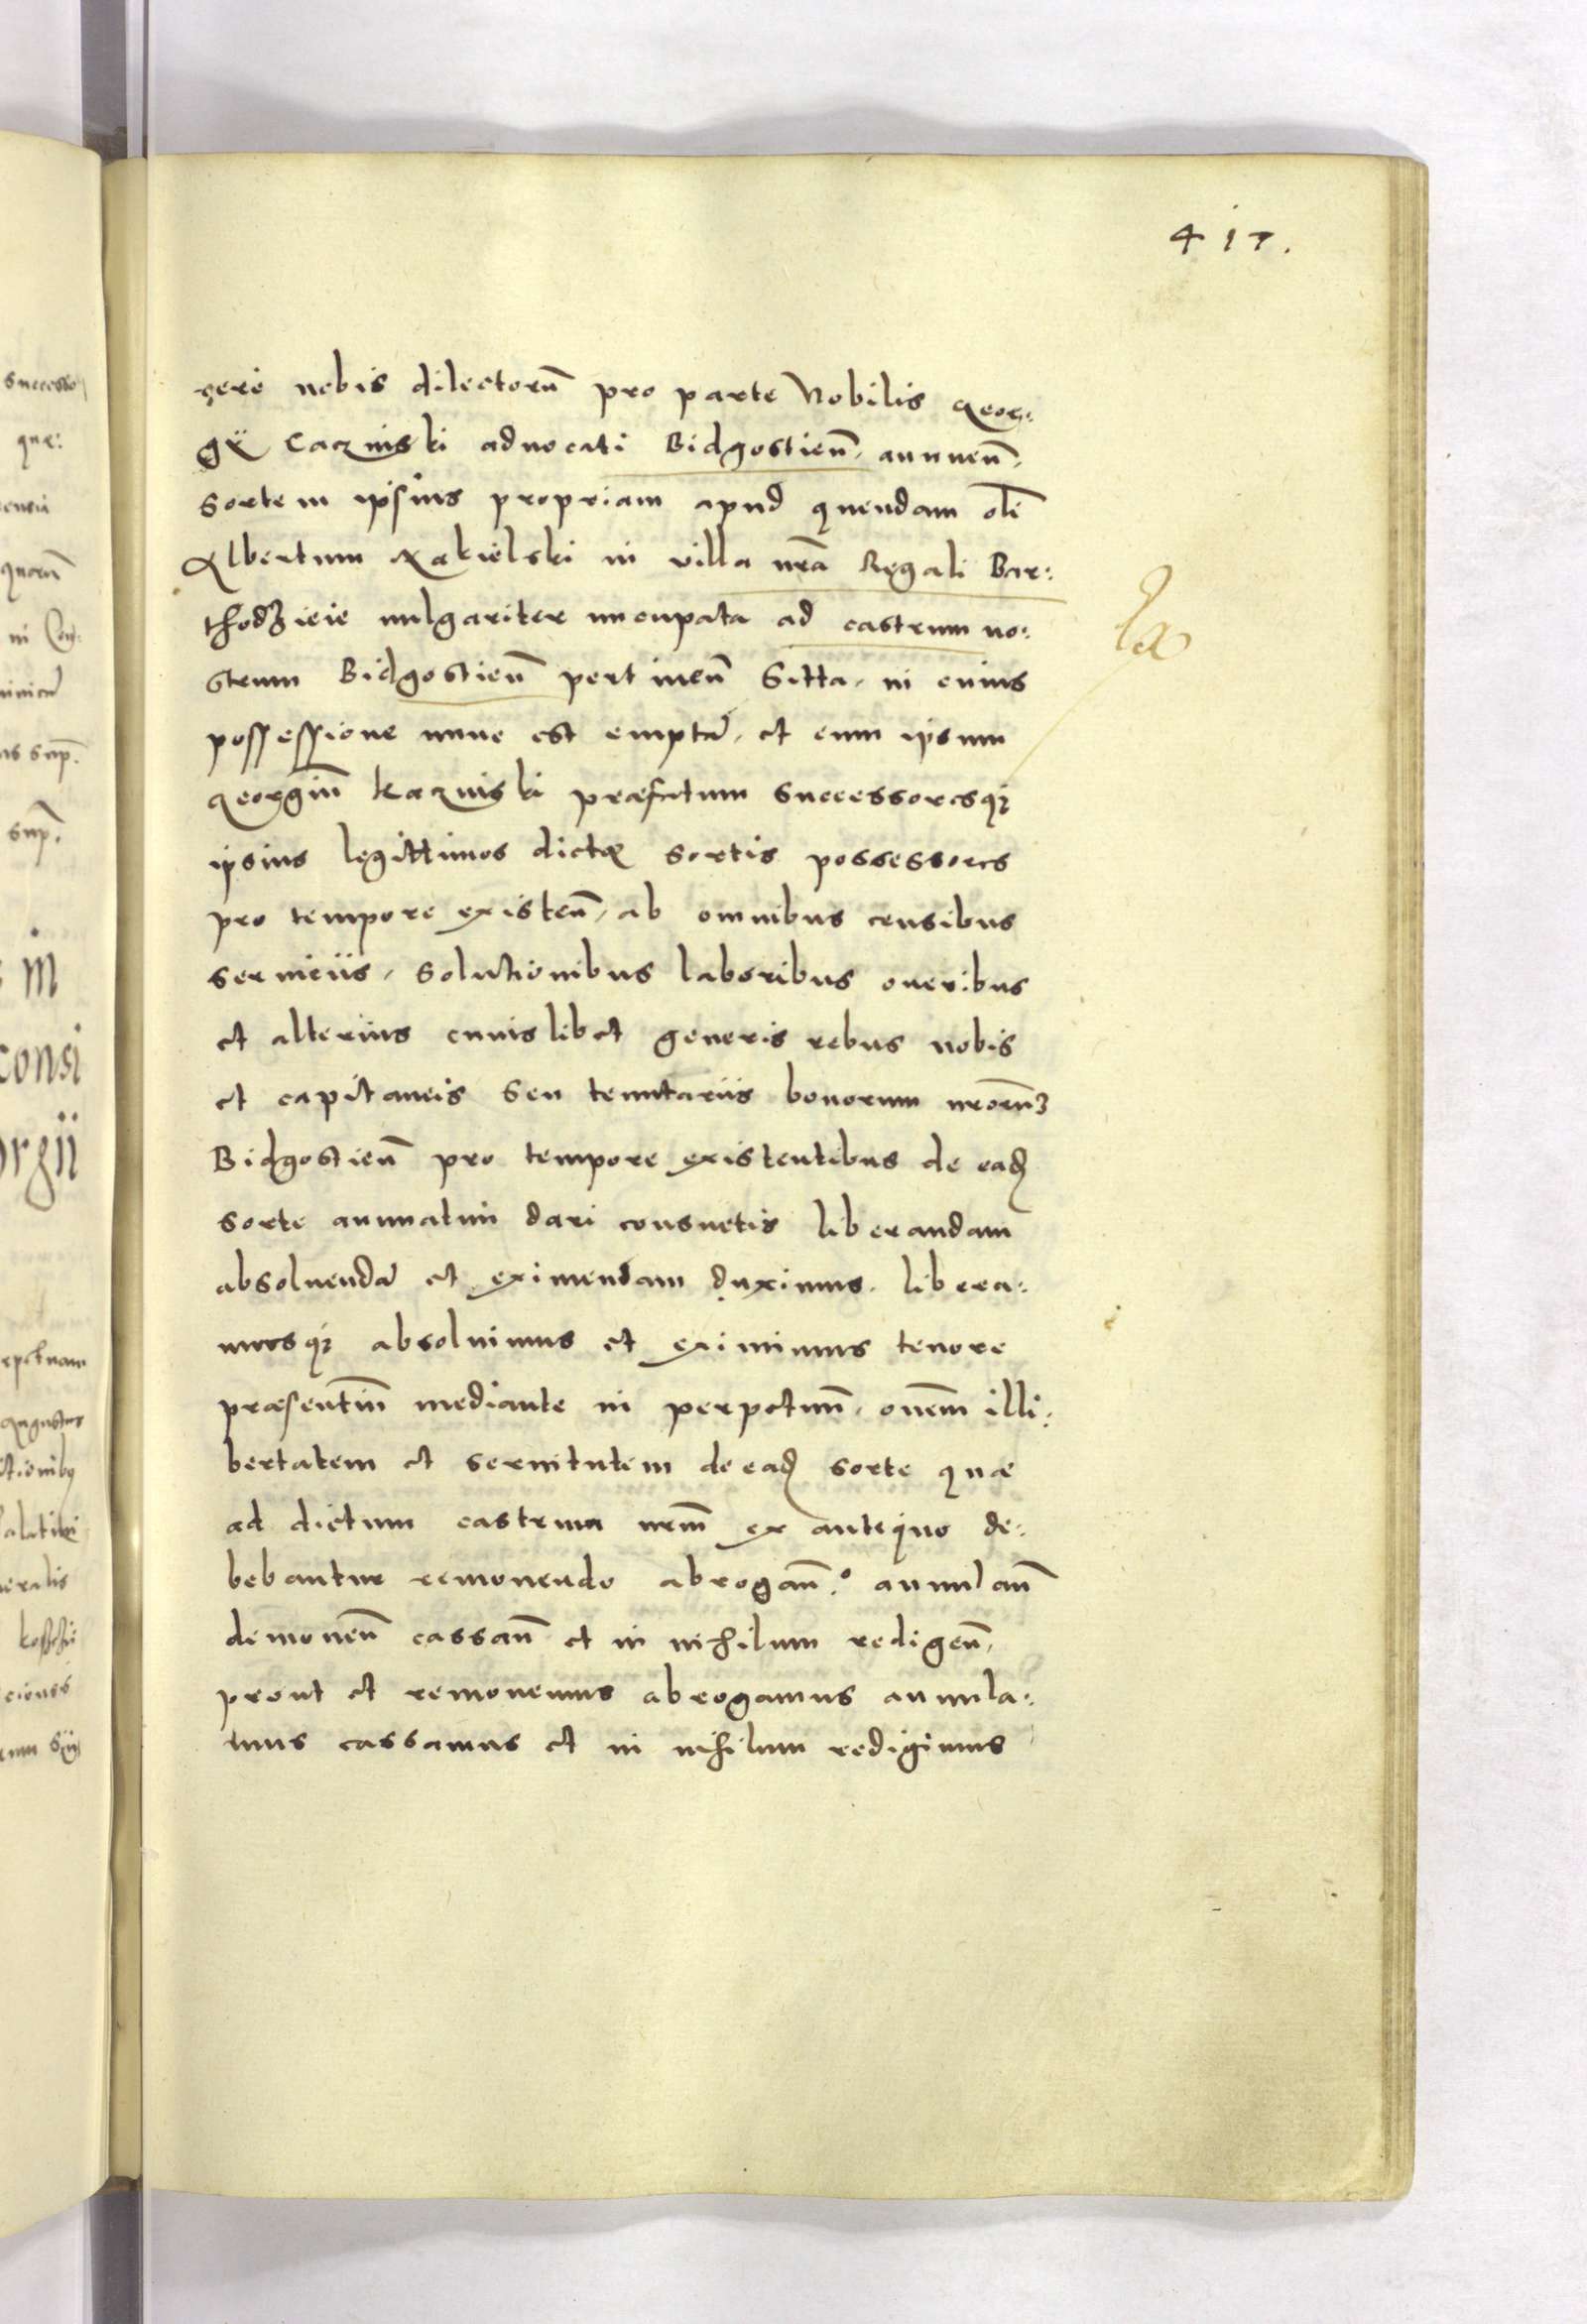 417.
cere nobis dilectorū pro parte Nobilis Geor:
gÿ Caczniski aduocati Bidgostien̄. annuen̄.
Sortem ipsius propriam apud quendam olī
Albertum Rakielski in villa nr̄a Regali Bar:
thodzieie uulgariter nuncupata ad castrum no:
strum Bidgostien̄ pertinen̄ Sitta. in cuius
possessione nunc est emptā. et eum ipsum
Georgiū Kaczniski præfatum Successoresqꝫ
ipsius legittimos dictæ Sortis possessores
pro tempore existen̄. ab omnibus censibus
seruiciis. Solutionibus laboribus oneribus
et alterius cuiuslibet generis rebus nobis
et capitaneis Seu tenutariis bonorum nr̄orum
Bidgostien̄ pro tempore existentibus de eadꝫ
sorte annuatim dari consuetis liberandam
absoluendā et eximendam duximus. libera:
musqꝫ absoluimus et eximimus tenore
præsentiū mediante in perpetuū. om̄em illi:
bertatem et seruitutem de eadꝫ sorte quæ
ad dictum castrum nr̄m ex antiquo de:
bebantur remouendo abrogan̄. annulan̄
demouen̄ cassan̄ et in nihilum redigen̄.
prout et remouemus abrogamus annula:
mus cassamus et in nihilum redigimus